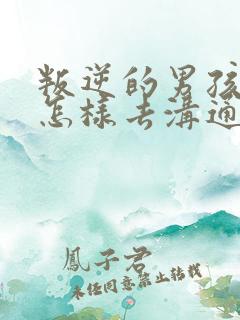 叛逆的男孩
怎樣去溝通
鳳子君
未任同意禁止轉載